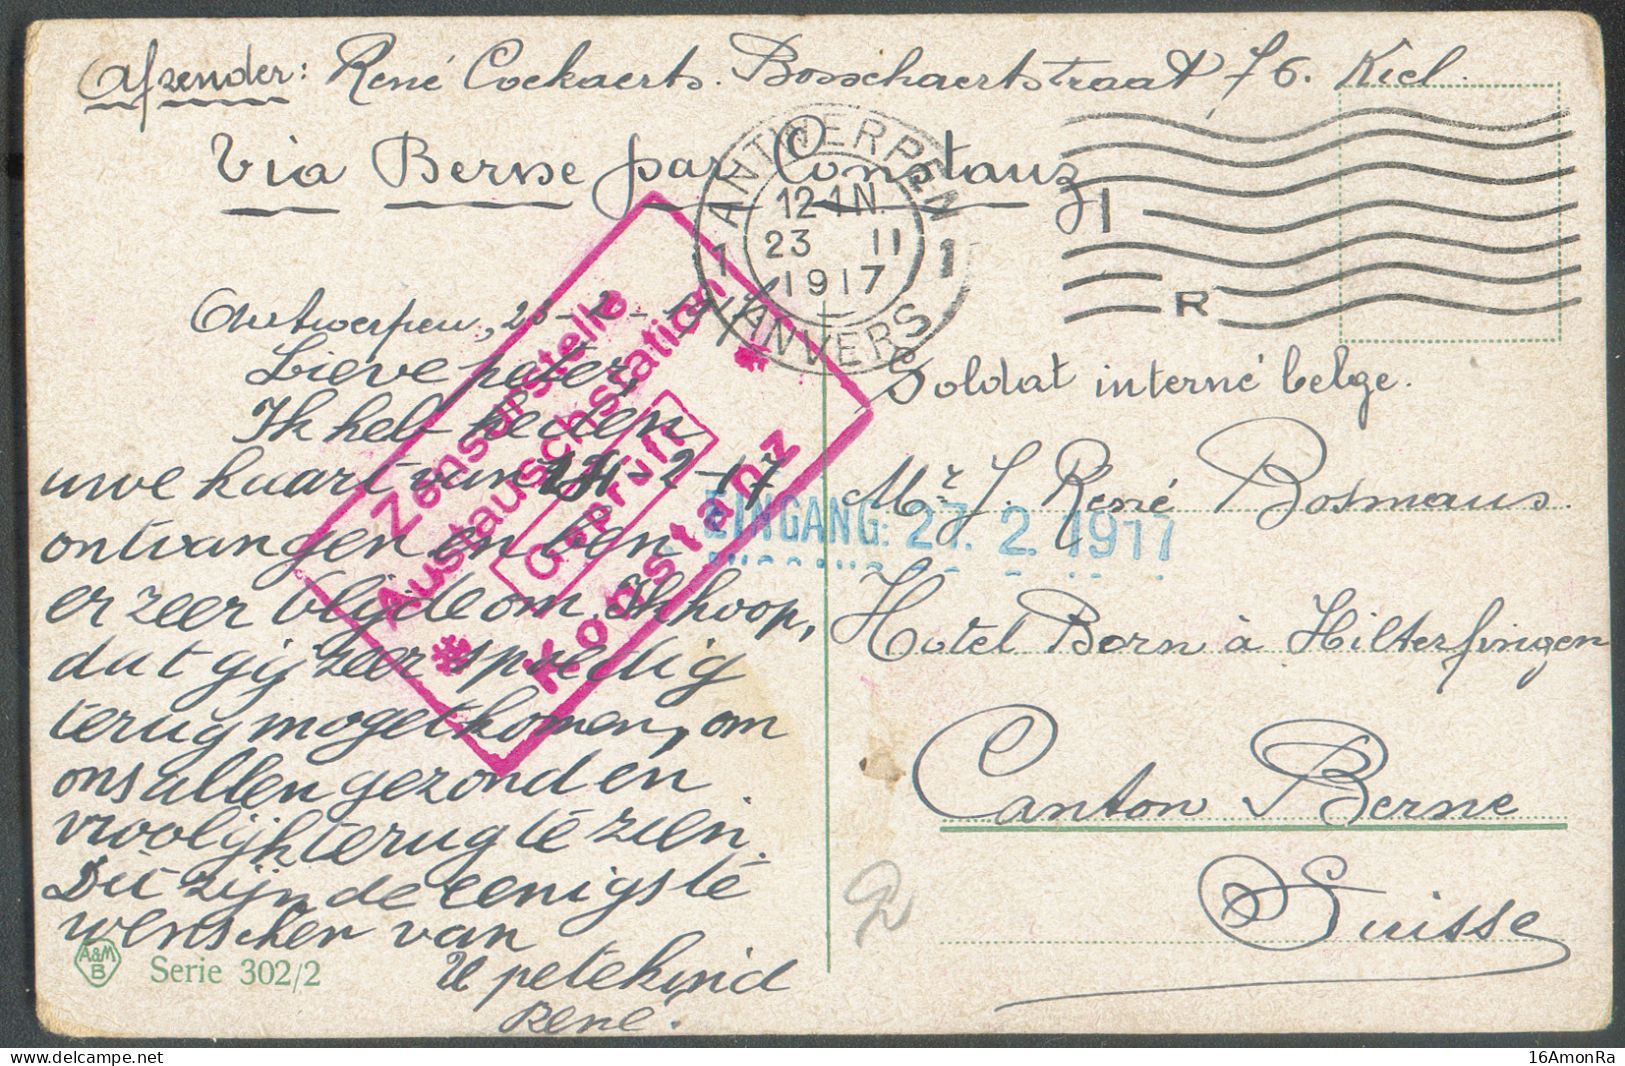 Afzender: René Cockaerts. Bosschaertstraat 76. Kiel.
Via Berne par Constanz
ANTWERPEN
12-1N.
23 II
1917
1 1
ANVERS
I
R
Antwerpen, 23-2-1917
Lieve peter,
Ik heb heden
uwe kaart van 14-2-17
ontvangen en ben
er zeer blijde om. Ik hoop,
dat gij zeer spoedig
terug moget komen, om
ons allen gezond en
vroolijk terug te zien.
Dit zijn de eenigste
wenschen van
U petekind
René.
Zensurstelle
Austauschstation
Geprüft
Konstanz
EINGANG: 27. 2. 1917
Soldat interné belge.
Mr. J. René Bosmans
Hotel Born à Hilterfingen
Canton Berne
Suisse
A&M
B
Serie 302/2
16AmonRa